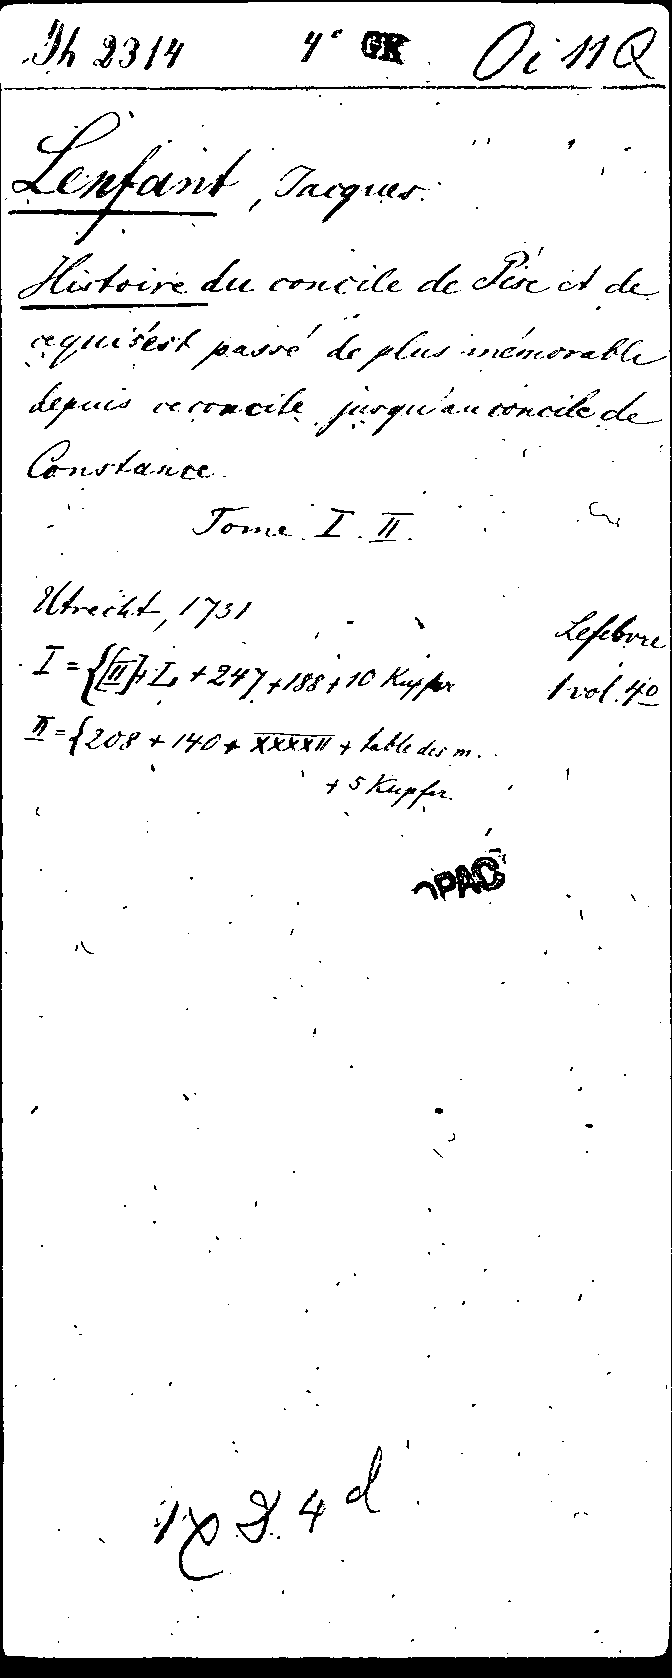 Th 2314 4° GK Oi 11 Q
Lenfant, Jacques.
Histoire du concile de Pise et de
ce qui s'est passé de plus mémorable
depuis ce concile jusqu'au concile de
Constance.
Tome I. II.
Utrecht, 1731
Lefebvre
I = {[II] + L + 247 + 188 + 10 Kupfer
1 vol. 4°
II = {208 + 140 + XXXXII + table des m.
+ 5 Kupfer.
OPAC